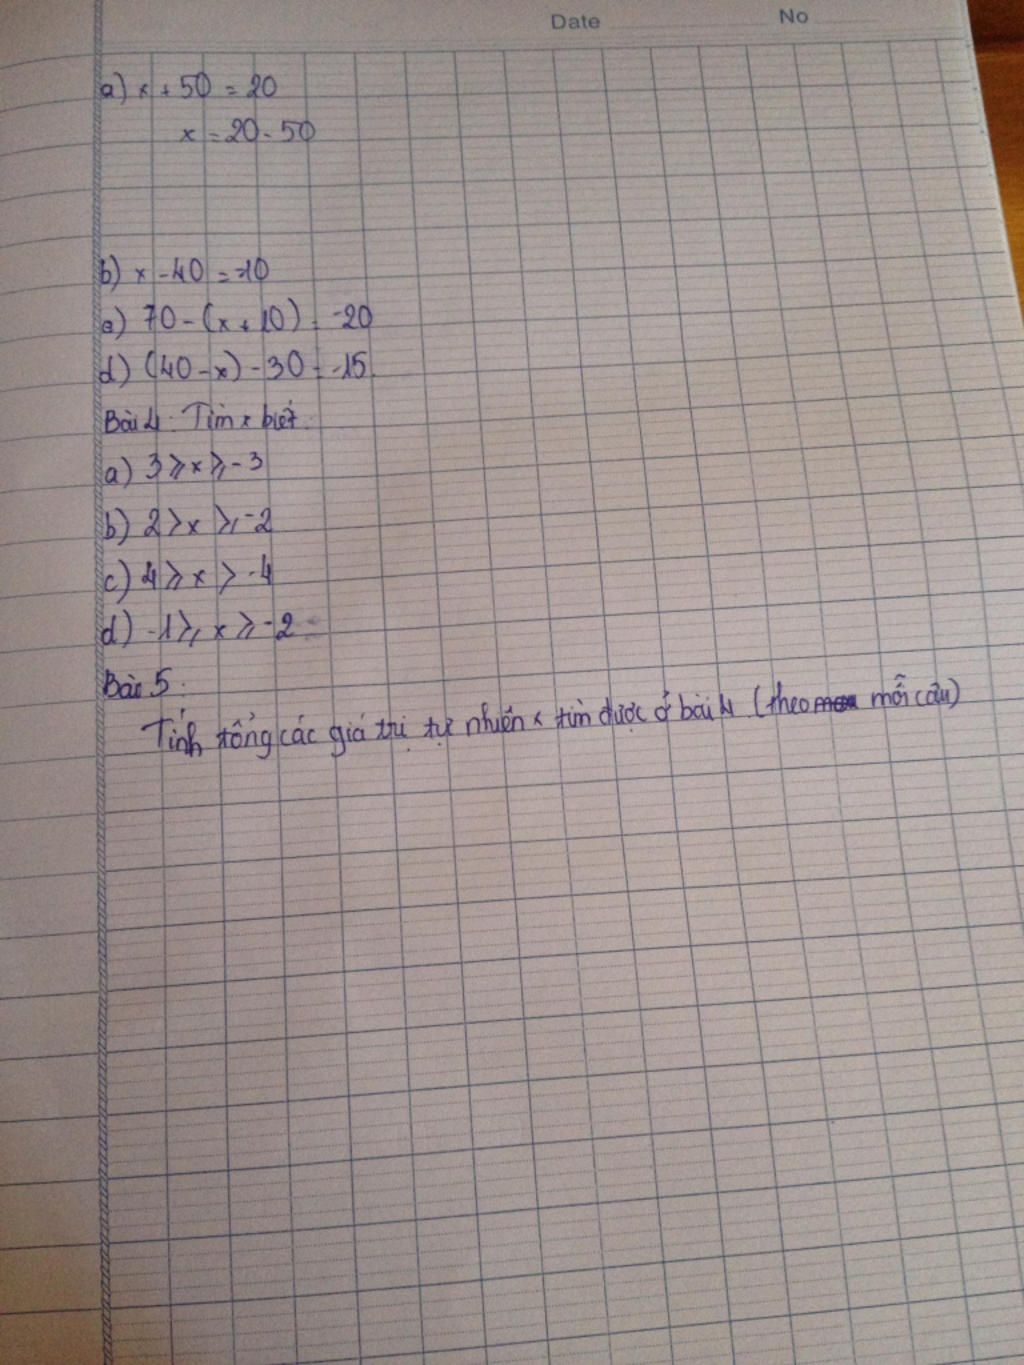 Date No
a) x + 50 = 20
x = 20 - 50
b) x - 40 = -10
c) 70 - (x + 10) = -20
d) (40 - x) - 30 = -15
Bài 4: Tìm x biết
a) 3 ⩾ x ⩾ -3
b) 2 > x ⩾ -2
c) 4 ⩾ x > -4
d) -1 ⩾ x ⩾ -2
Bài 5:
Tính tổng các giá trị tự nhiên x tìm được ở bài 4 (theo mỗi câu)